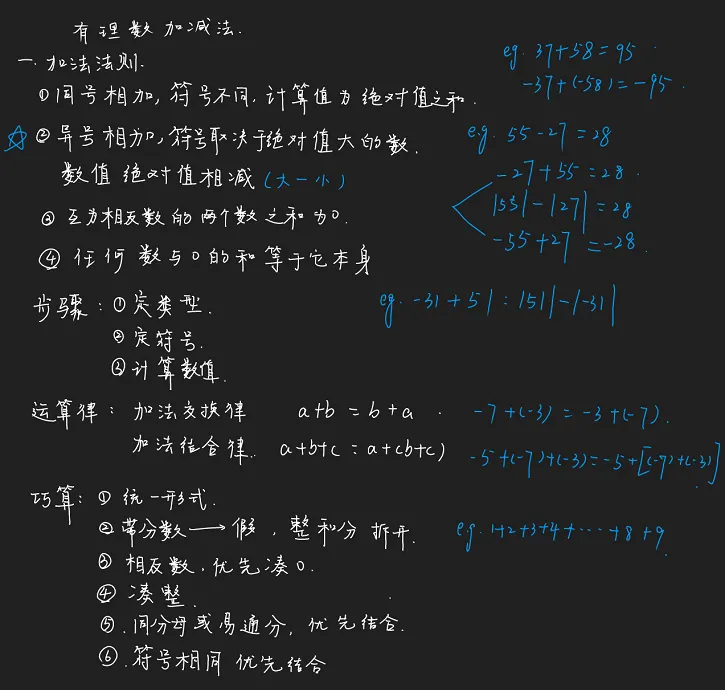 有理数加减法.
一.加法法则.
①同号相加,符号不同,计算值为绝对值之和.
eg. 37+58=95
-37+(-58)=-95
☆②异号相加,符号取决于绝对值大的数.
数值绝对值相减(大-小)
e.g. 55-27=28
-27+55=28
|55|-|27|=28
-55+27=-28
③互为相反数的两个数之和为0.
④任何数与0的和等于它本身
步骤:①定类型.
②定符号.
③计算数值.
eg. -31+51:|51|-|-31|
运算律:加法交换律 a+b=b+a. -7+(-3)=-3+(-7).
加法结合律. a+b+c=a+(b+c) -5+(-7)+(-3)=-5+[(-7)+(-3)]
巧算:①统一形式.
②带分数→假,整和分拆开. e.g. 1+2+3+4+……+8+9
③相反数.优先凑0.
④凑整.
⑤.同分母或易通分,优先结合.
⑥.符号相同优先结合